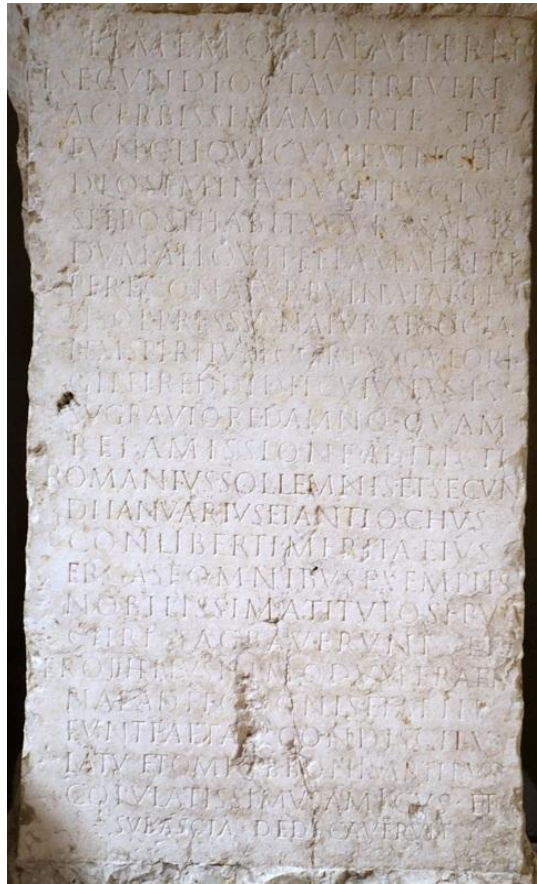 ET MEMORIAE AETERN
SECVNDI OCTAVI TREVERI
ACERBISSIMA MORTE DE
FVNCTI QVI CVM EX INCEN
DIO SEMINVDVS EFFVGIS
SET POSTHABITA CVRA SALVTIS
DVM ALIQVIT E FLAMMIS ERI
PERE CONATVR RVINA PARIE
TIS OPPRESSVS NATVRAE SOCIA
LEM SPIRITVM CORPVSQVE ORI
GINI REDDIDIT CVIVS EXCES
SV GRAVIORE DAMNO QVAM
REI AMISSIONE ADFLICTI
ROMANIVS SOLLEMNIS ET SECVN
DI IANVARIVS ET ANTIOCHVS
CONLIBERTI MERITA EIVS
ERGA SE OMNIBVS EXEMPLIS
NOBILISSIMA TITVLO SEPVL
CHRI SACRAVERVNT
AETATE CONDISCIPVL
LATV ET OMNIBVS BONIS ARTIBVS
COPVLATISSIMVS AMICVS ET
SVB ASCIA DEDICAVERVNT